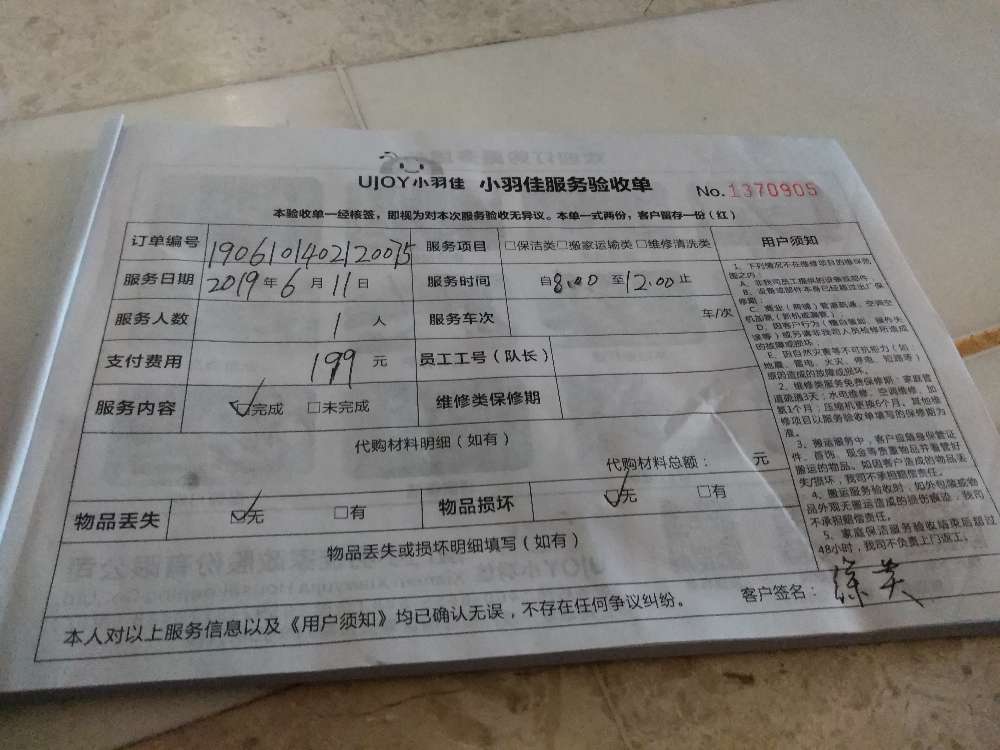 UJOY小羽佳 小羽佳服务验收单 No.1370905
本验收单一经核签，即视为对本次服务验收无异议。本单一式两份，客户留存一份（红）
订单编号 1906101402120075 服务项目 □保洁类□搬家运输类□维修清洗类
服务日期 2019年6月11日 服务时间 自8:00至12:00止
服务人数 1人 服务车次 车/次
支付费用 199元 员工工号（队长）
服务内容 ☑完成 □未完成 维修类保修期
代购材料明细（如有）
代购材料总额： 元
物品丢失 ☑无 □有 物品损坏 ☑无 □有
物品丢失或损坏明细填写（如有）
本人对以上服务信息以及《用户须知》均已确认无误，不存在任何争议纠纷。
客户签名：
用户须知
1、下列情况不在维修项目的维保范
围之内：
A、非我司员工提供的设备或部件
B、设备或部件本身已经超过出厂保
修期；
C、商业（商铺）管道疏通，空调空
机加氟（新机或漏氟）
D、因客户行为（擅自增加、操作失
误等）或另请非我司人员检修所造成
的故障或损坏；
E、因自然灾害等不可抗能力（如：
地震、雷电、火灾、停电、短路等）
原因造成的故障或损坏。
2、维修类服务免费保修期：家庭管
道疏通3天；水电维修、空调维修、加
氟1个月；压缩机更换6个月。其他维
修项目以服务验收单填写的保修期为
准。
3、搬运服务中，客户应随身保管证
件、首饰、现金等贵重物品并看管好
搬运的物品。如因客户造成的物品丢
失/损坏，我司不承担赔偿责任。
4、搬运服务验收时，如外包装或物
品外观无搬运造成的损伤痕迹，我司
不承担赔偿责任。
5、家庭保洁服务验收结束后超过
48小时，我司不负责上门返工。